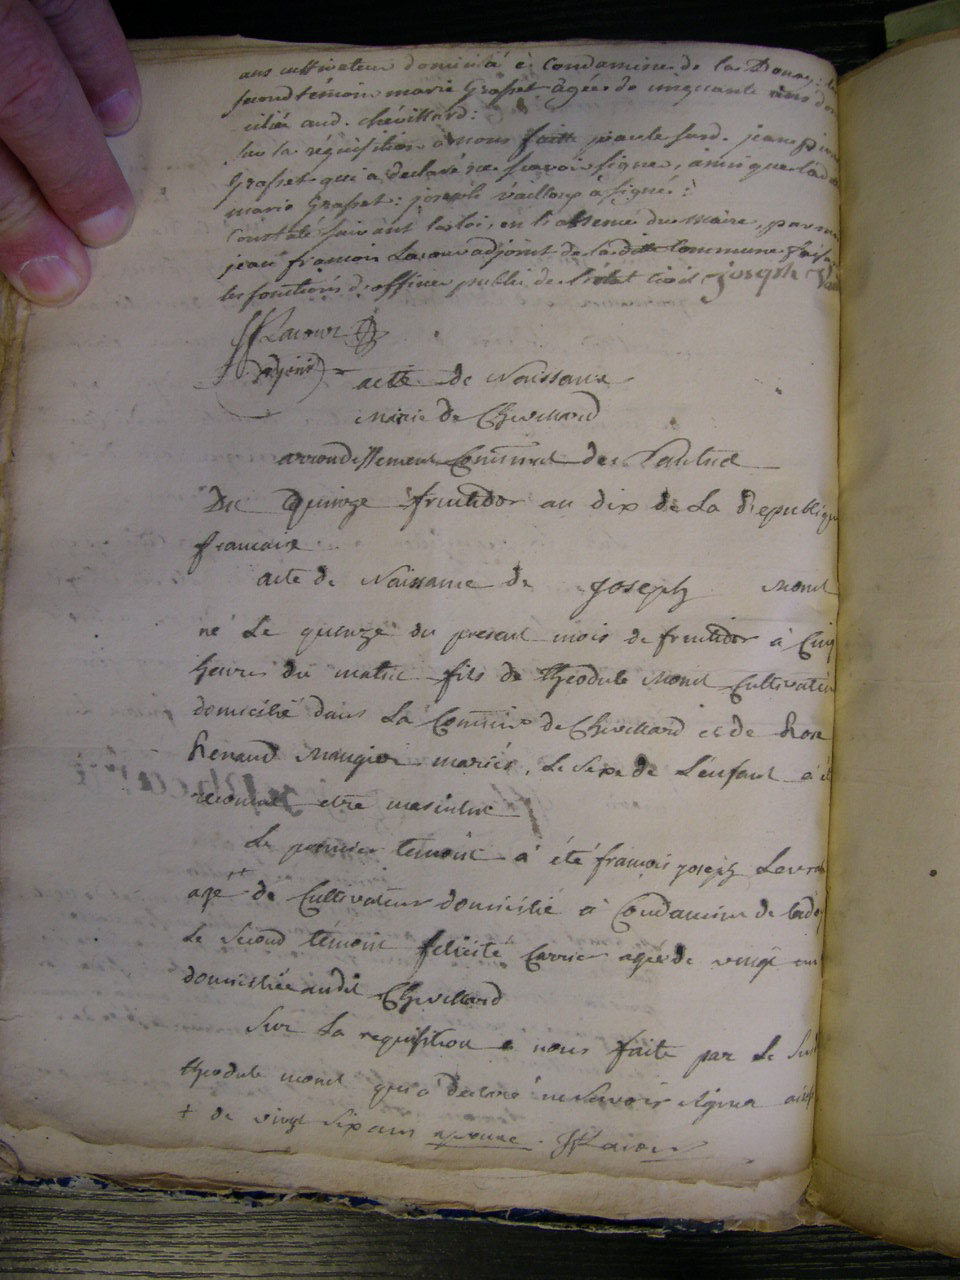 ans cultivateur domicilié à Condamine de la Douay: le
second témoin marie Grosset agées de cinquante ans dom
ciliée aud. chévillard:
sur la réquisition à nous faitte par le susd. jean pierre
Grosset qui a declaré ne scavoir signer, ainsi que ladite
marie Grosset: joseph vailloux a signé:
Constaté suivant la loi, en l'absence du maire, par moi
jean françois Lacour adjoint de la ditte Commune faisant
les fonctions d'officier public de l'état civil joseph
JF Lacour
adjoint
acte de Naissance
Mairie de Chevillard
arrondissement Communal de Nantua
Du quinze fructidor an dix de La Republique
francaise
acte de Naissance de Joseph Monet
né Le quinze du present mois de fructidor à Cinq
heures du matin fils de théodule Monet Cultivateur
domicilié dans La Commune de Chevillard et de Rose
Renaud Maugier mariés, Le Sexe de L'enfant à été
reconnut etre masculin
Le premier temoin à été françois joseph Levrat
agé + de Cultivateur domicilié à Condamine de lado
Le Second témoin felicité Carrier agée de vingt an
domiciliée audit Chevillard
Sur La requisition à nous faite par Le Sus
theodule monet qui à declaré ne Savoir signer
+ de vingt six ans JF Lacour